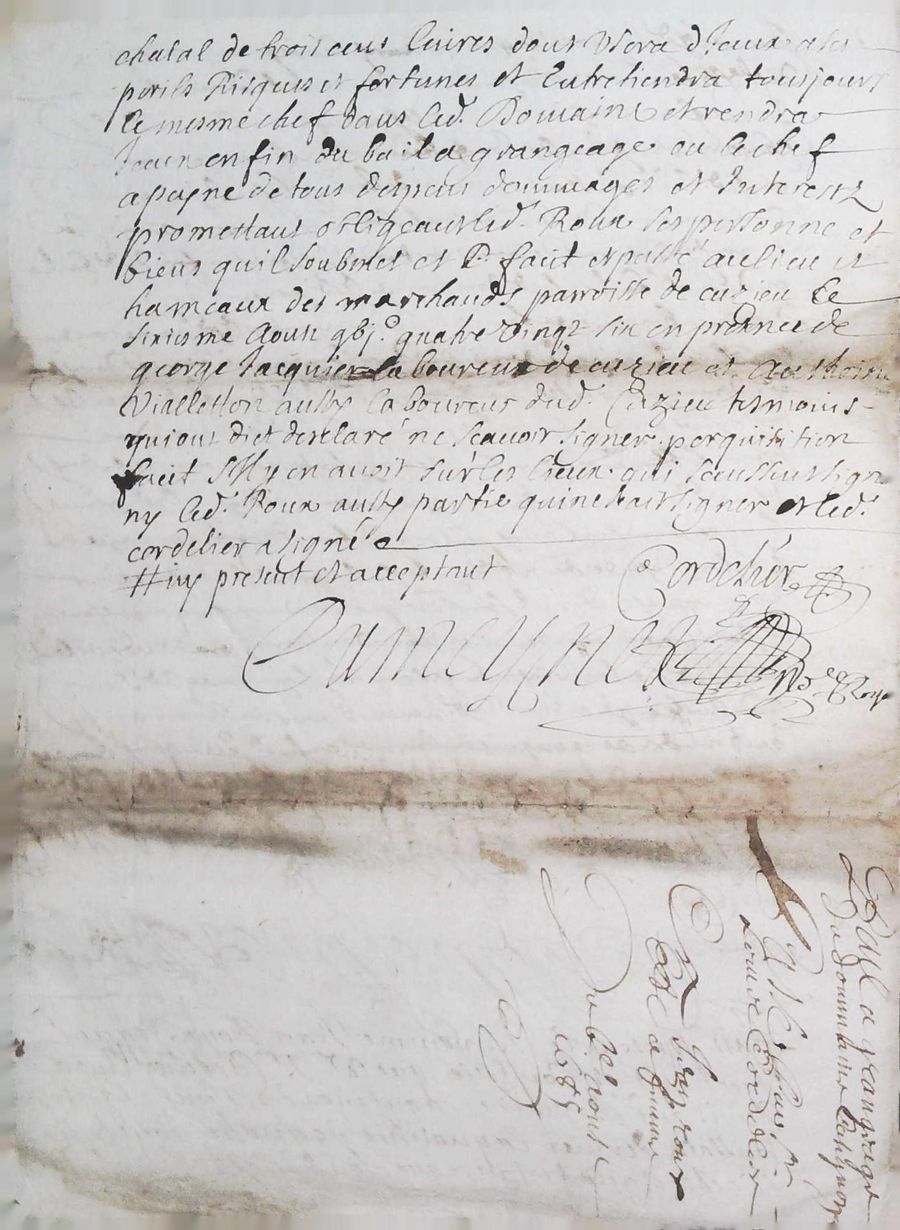 chatal de trois cens livres dont usera d'Iceux a ses
perils Risques et fortunes et Entretiendra tousjours
le mesme chef dans led. Domaine et rendra
Iceux en fin du bail a grangeage ou le chef
a payne de tous despens dommages et Interestz
promettant obligeant led. Roux ses personne et
biens qu'il soubmet et P. fait et passé au lieu et
hameaux des marchands parroisse de cuzieu Le
sixiesme Aoust gbjc. quatre vingt six en presence de
george Jacquier laboureur de cuzieu et Anthoine
Vialleton aussy laboureur dud. Cuzieu tesmoins
qui ont dict declaré ne scavoir signer perquisition
fait s'Il y en avoit sur les lieux qui sceussent sign
ny led. Roux aussy partie qui ne scait signer et led.
cordelier a signé
# icy present et acceptant
Cordelier
Dumeynet
No.re Royal
Bail a grangeage
du dommaine
Louis Cordelier
A Jean roux
Du 6 aoust